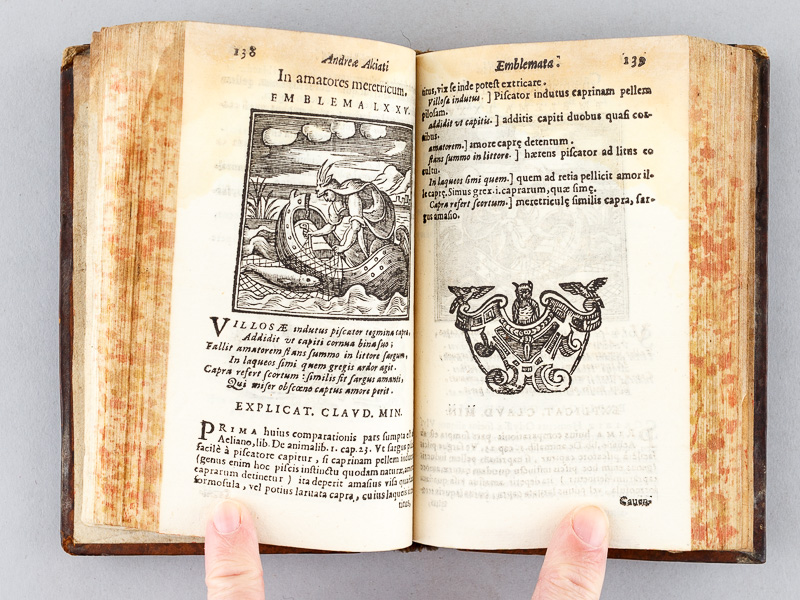 138
Andreæ Alciati
In amatores meretricum.
EMBLEMA LXXV.
VILLOSÆ indutus piscator tegmina capræ,
Addidit ut capiti cornua bina suo;
Fallit amatorem stans summo in littore sargum,
In laqueos simi quem gregis ardor agit.
Capra refert scortum: similis fit sargus amanti,
Qui miser obscœno captus amore perit.
EXPLICAT. CLAVD. MIN.
PRIMA huius comparationis pars sumpta
Aeliano, lib. De animalib. 1. cap. 23. Vt sargus
facilè à piscatore capitur, si caprinam pellem
(genus enim hoc piscis instinctu quodam naturæ,
caprarum detinetur) ita deperit amasius visa
formosula, vel potius laruata capra, cuius laqueis
titus,
Emblemata.
139
titus, vix se inde potest extricare.
Villosæ indutus.] Piscator indutus caprinam pellem
pilosam.
Addidit vt capitis.] additis capiti duobus quasi cor-
nibus.
amatorem.] amore caprę detentum.
stans summo in littore.] hærens piscator ad litus co
cultu.
In laqueos simi quem.] quem ad retia pellicit amor il-
le caprę. Simus grex. i. caprarum, quæ simę.
Capra refert scortum.] meretriculę similis capra, sar-
gus amasio.